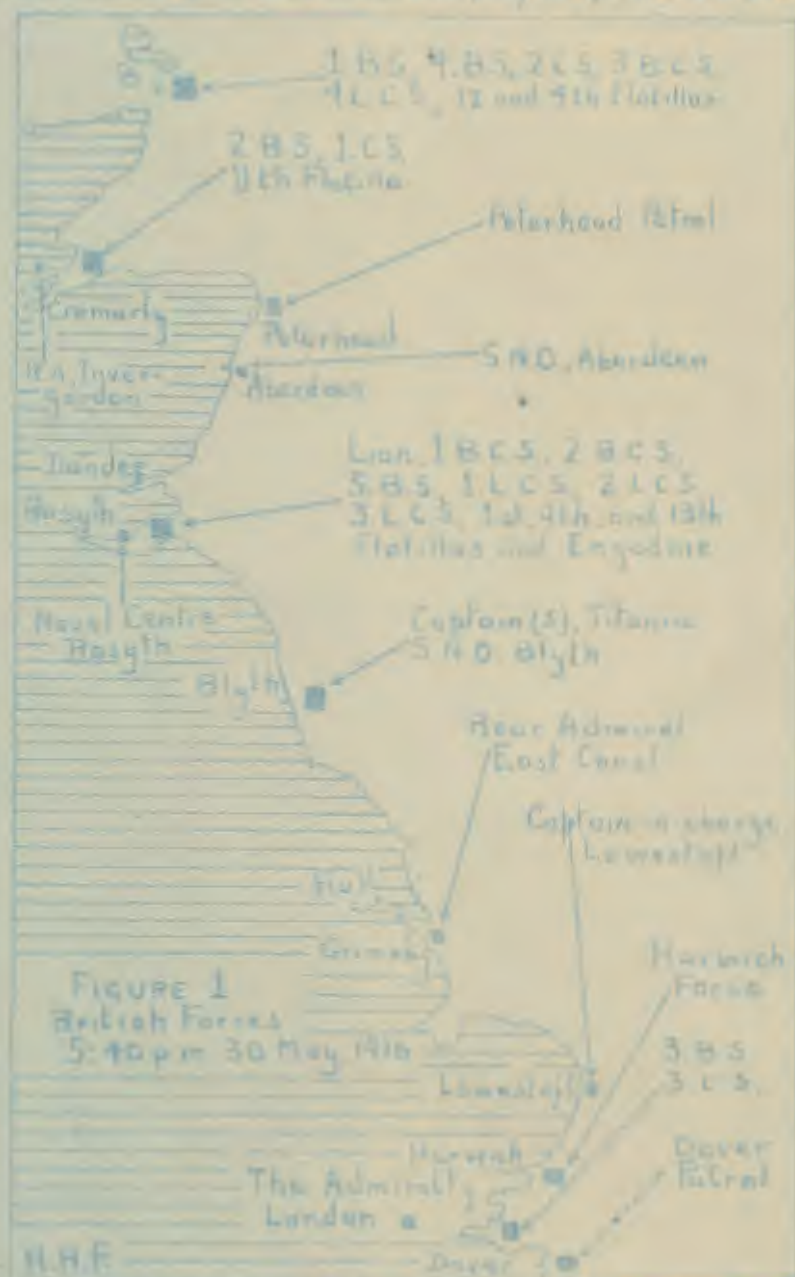 1 B.S, 4.B.S, 2 C.S, 3 B.C.S.
4 L.C.S, 12 and 4th Flotillas
2 B.S, 1 C.S,
11th Flotilla
Peterhead Patrol
Cromarty
Peterhead
S.N.O., Aberdeen
Inver-
gordon
Aberdeen
Dundee
Lion, 1 B.C.S, 2 B.C.S,
5.B.S, 1 L.C.S, 2 L.C.S
3 L.C.S, 1st, 9th and 13th
Flotillas and Engadine
Rosyth
Naval Centre
Rosyth
Captain (S), Titania
S.N.O. Blyth
Blyth
Rear Admiral
East Coast
Captain-in-charge
Lowestoft
Hull
Grimsby
Harwich
Force
FIGURE 1
British Forces
5:40 pm 30 May 1916
3 B.S
3 C.S.
Lowestoft
Dover
Patrol
Harwich
The Admiralty
London
Dover